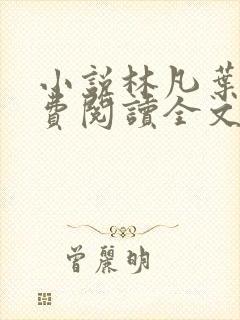 小説林凡葉
費閱讀全文
曾麗明